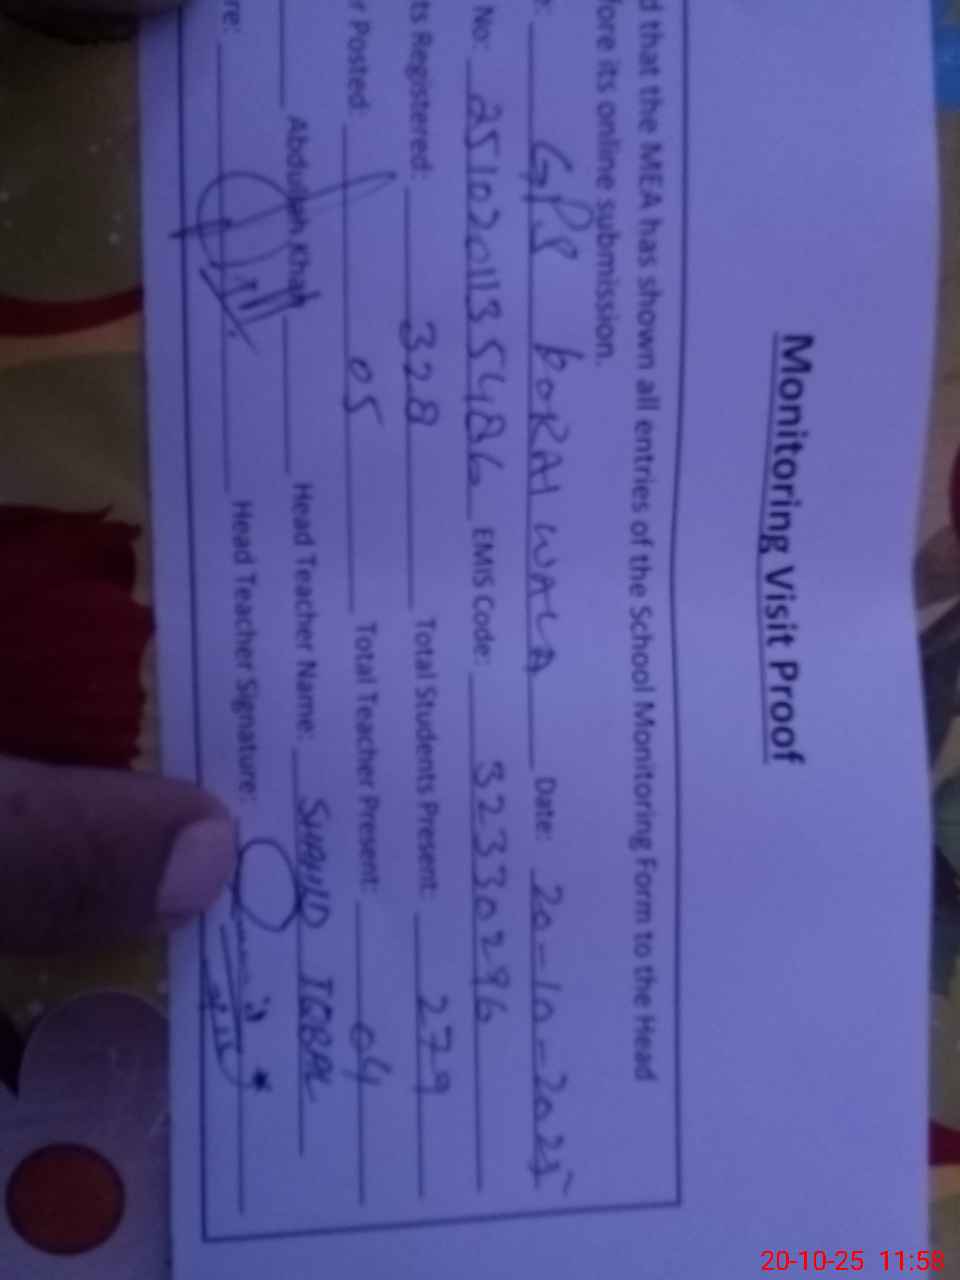 Monitoring Visit Proof
d that the MEA has shown all entries of the School Monitoring Form to the Head
fore its online submission.
e: GPS BORAI WALA Date: 20-10-2025
No: 2510201135486 EMIS Code: 32330296
ts Registered: 328 Total Students Present: 279
r Posted: 05 Total Teacher Present: 04
Abdullah Khan Head Teacher Name: SHAHID IQBAL
re: Head Teacher Signature:
20-10-25 11:58